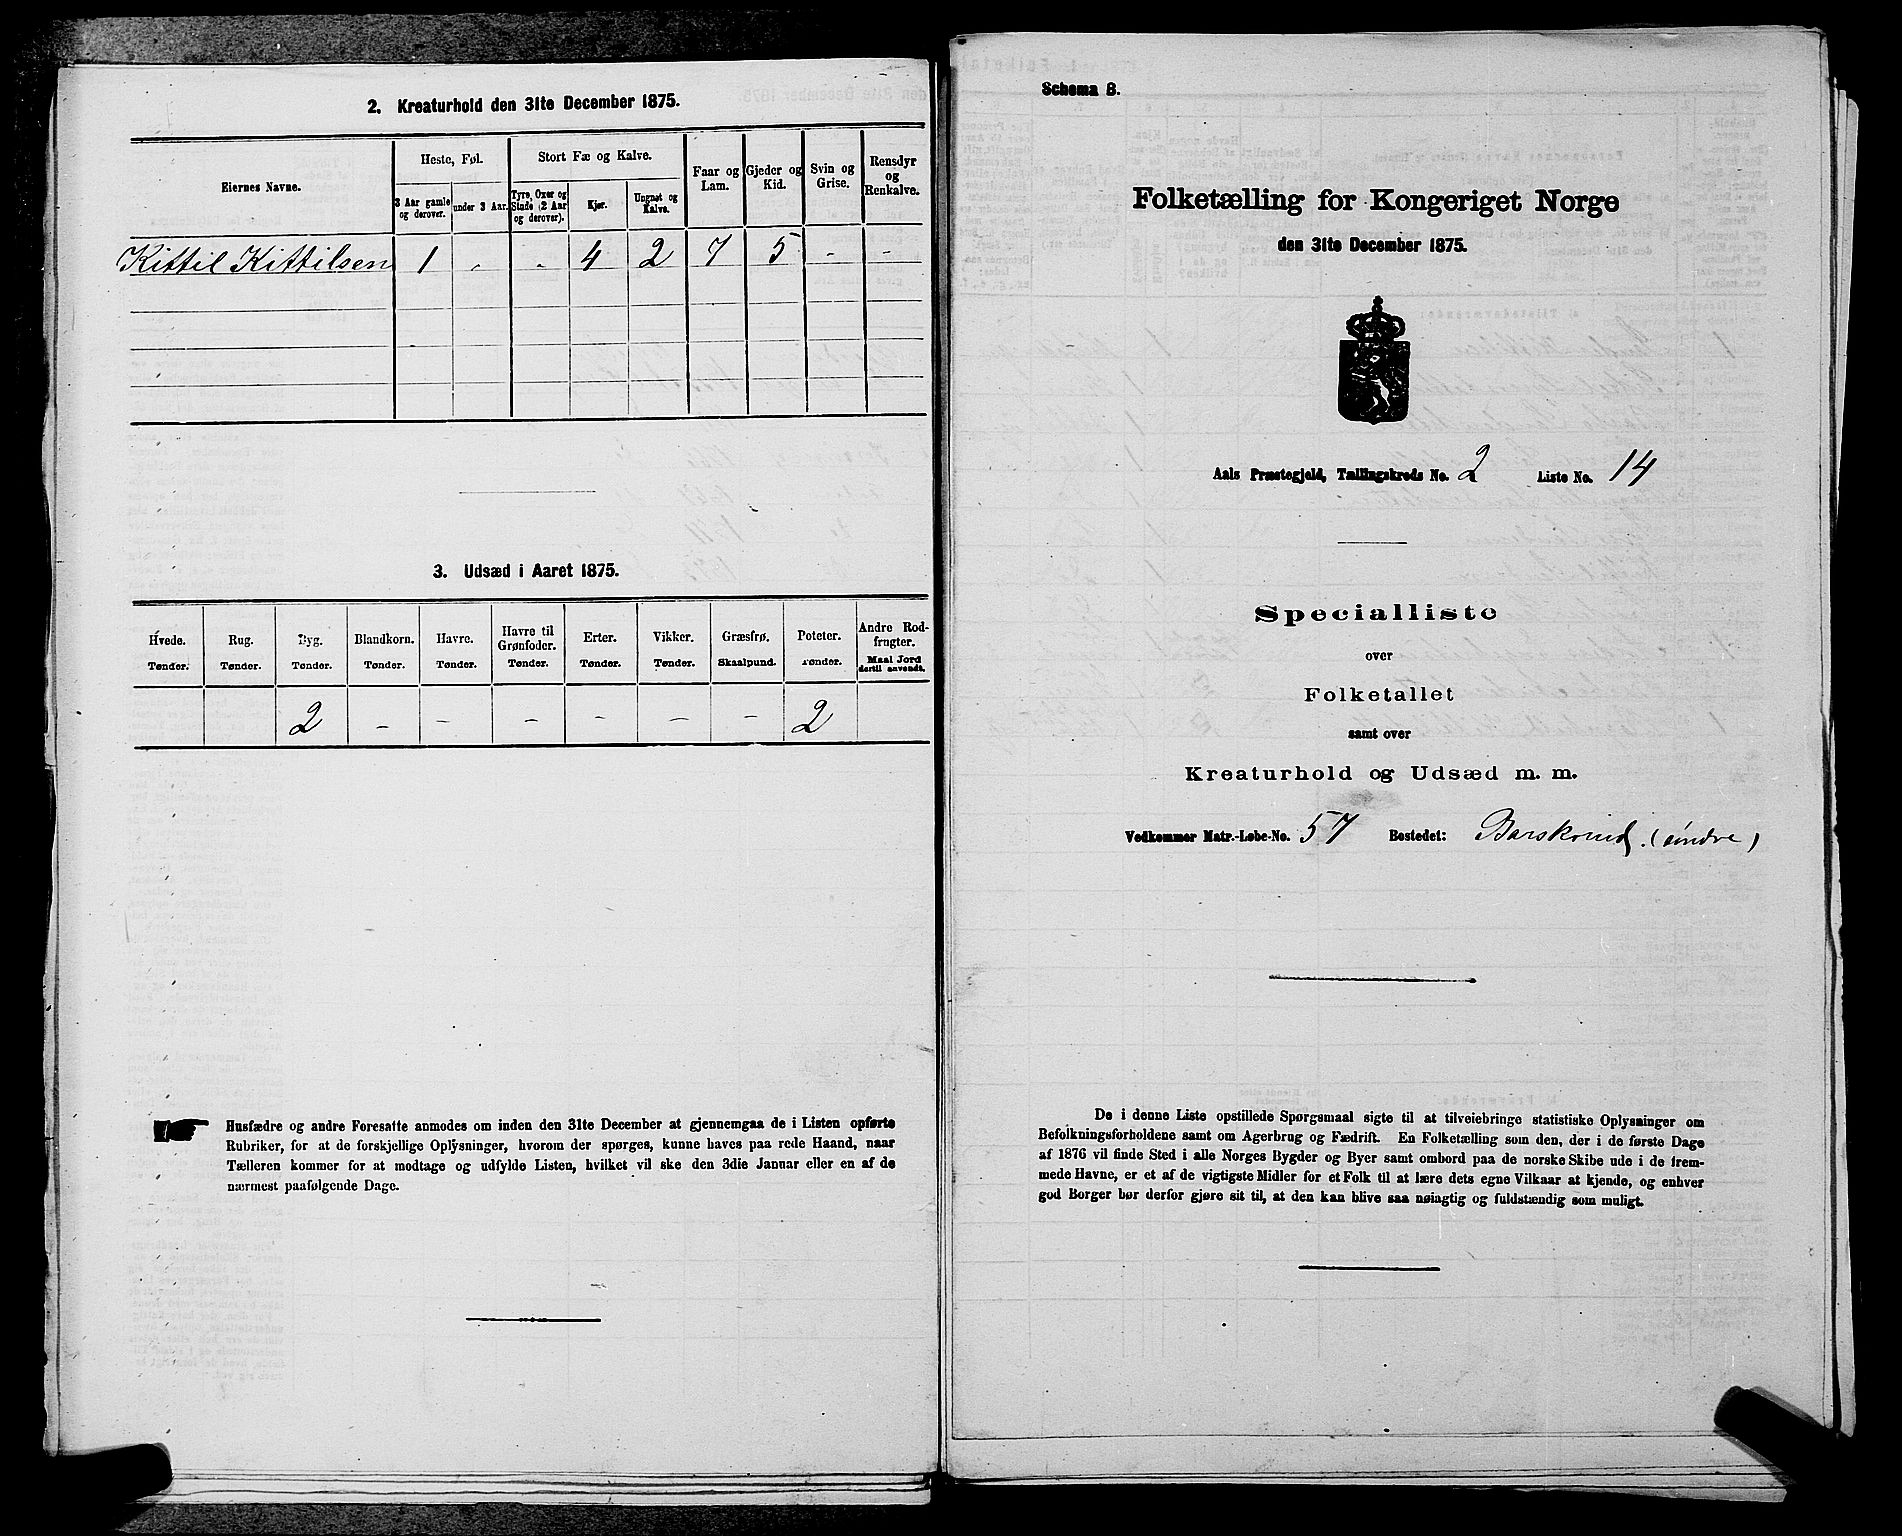 2. Kreaturhold den 31te December 1875.
Eiernes Navne.
Heste, Føl.
Stort Fæ og Kalve.
Faar og Lam.
Gjeder og Kid.
Svin og Grise.
Rensdyr og Renkalve.
3 Aar gamle og derover.
under 3 Aar.
Tyre, Oxer og Stude (2 Aar og derover).
Kjør.
Ungnøt og Kalve.
Kittil Kittilsen 1 - - 4 2 7 5 - -
3. Udsæd i Aaret 1875.
Hvede. Rug. Byg. Blandkorn. Havre. Havre til Grønfoder. Erter. Vikker. Græsfrø. Poteter. Andre Rodfrugter.
Tønder. Tønder. Tønder. Tønder. Tønder. Tønder. Tønder. Tønder. Skaalpund. Tønder. Maal Jord dertil anvendt.
2 - - - - - - 2
Husfædre og andre Foresatte anmodes om inden den 31te December at gjennemgaa de i Listen opførte
Rubriker, for at de forskjellige Oplysninger, hvorom der spørges, kunne haves paa rede Haand, naar
Tælleren kommer for at modtage og udfylde Listen, hvilket vil ske den 3die Januar eller en af de
nærmest paafølgende Dage.
Schema B.
Folketælling for Kongeriget Norge
den 31te December 1875.
Aals Præstegjeld, Tællingskreds No. 2 Liste No. 14
Specialliste
over
Folketallet
samt over
Kreaturhold og Udsæd m. m.
Vedkommer Matr.-Løbe-No. 57 Bostedet: Barskrind. (indre)
De i denne Liste opstillede Spørgsmaal sigte til at tilveiebringe statistiske Oplysninger om
Befolkningsforholdene samt om Agerbrug og Fædrift. En Folketælling som den, der i de første Dage
af 1876 vil finde Sted i alle Norges Bygder og Byer samt ombord paa de norske Skibe ude i de frem-
mede Havne, er et af de vigtigste Midler for et Folk til at lære dets egne Vilkaar at kjende, og enhver
god Borger bør derfor gjøre sit til, at den kan blive saa nøiagtig og fuldstændig som muligt.